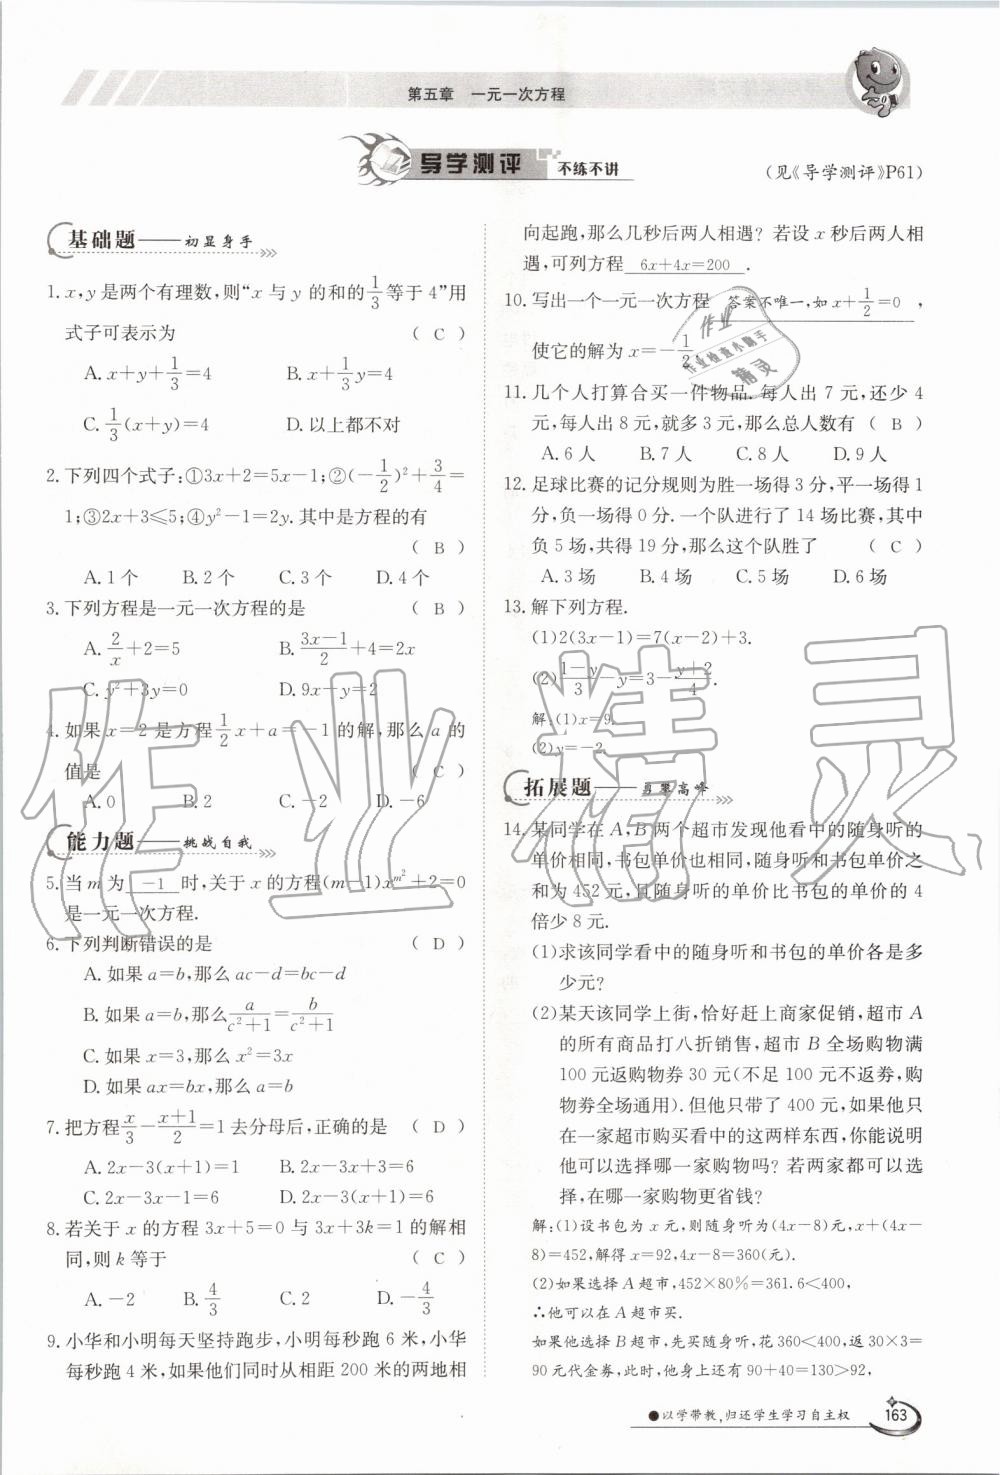 第五章 一元一次方程
导学测评 不练不讲
(见《导学测评》P61)
基础题——初显身手
1. x,y是两个有理数,则“x与y的和的1/3等于4”用
式子可表示为 ( C )
A. x+y+1/3=4 B. x+1/3y=4
C. 1/3(x+y)=4 D. 以上都不对
2. 下列四个式子:①3x+2=5x-1;②(-1/2)²+3/4=
1;③2x+3≤5;④y²-1=2y. 其中是方程的有
( B )
A. 1个 B. 2个 C. 3个 D. 4个
3. 下列方程是一元一次方程的是 ( B )
A. 2/x+2=5 B. (3x-1)/2+4=2x
C. y²+3y=0 D. 9x-y=2
4. 如果x=2是方程1/2x+a=-1的解,那么a的
值是 ( C )
A. 0 B. 2 C. -2 D. -6
能力题——挑战自我
5. 当m为 -1 时,关于x的方程(m-1)x^m²+2=0
是一元一次方程.
6. 下列判断错误的是 ( D )
A. 如果a=b,那么ac-d=bc-d
B. 如果a=b,那么a/(c²+1)=b/(c²+1)
C. 如果x=3,那么x²=3x
D. 如果ax=bx,那么a=b
7. 把方程x/3-(x+1)/2=1去分母后,正确的是 ( D )
A. 2x-3(x+1)=1 B. 2x-3x+3=6
C. 2x-3x-1=6 D. 2x-3(x+1)=6
8. 若关于x的方程3x+5=0与3x+3k=1的解相
同,则k等于 ( C )
A. -2 B. 4/3 C. 2 D. -4/3
9. 小华和小明每天坚持跑步,小明每秒跑6米,小华
每秒跑4米,如果他们同时从相距200米的两地相
向起跑,那么几秒后两人相遇?若设x秒后两人相
遇,可列方程 6x+4x=200 .
10. 写出一个一元一次方程 答案不唯一,如x+1/2=0 ,
使它的解为x=-1/2.
11. 几个人打算合买一件物品.每人出7元,还少4
元,每人出8元,就多3元,那么总人数有 ( B )
A. 6人 B. 7人 C. 8人 D. 9人
12. 足球比赛的记分规则为胜一场得3分,平一场得1
分,负一场得0分.一个队进行了14场比赛,其中
负5场,共得19分,那么这个队胜了 ( C )
A. 3场 B. 4场 C. 5场 D. 6场
13. 解下列方程.
(1)2(3x-1)=7(x-2)+3.
(2)(1-y)/3-y=3-(y+2)/4.
解:(1)x=9.
(2)y=-2.
拓展题——勇攀高峰
14. 某同学在A,B两个超市发现他看中的随身听的
单价相同,书包单价也相同,随身听和书包单价之和
为452元,且随身听的单价比书包的单价的4
倍少8元.
(1)求该同学看中的随身听和书包的单价各是多
少元?
(2)某天该同学上街,恰好赶上商家促销,超市A
的所有商品打八折销售,超市B全场购物满
100元返购物券30元(不足100元不返券,购
物券全场通用).但他只带了400元,如果他只
在一家超市购买看中的这两样东西,你能说明
他可以选择哪一家购物吗?若两家都可以选
择,在哪一家购物更省钱?
解:(1)设书包为x元,则随身听为(4x-8)元,x+(4x-
8)=452,解得x=92,4x-8=360(元).
(2)如果选择A超市,452×80%=361.6<400,
∴他可以在A超市买.
如果他选择B超市,先买随身听,花360<400,返30×3=
90元代金券,此时,他身上还有90+40=130>92,
●以学带教,归还学生学习自主权 163
作业检查小助手
作业精灵